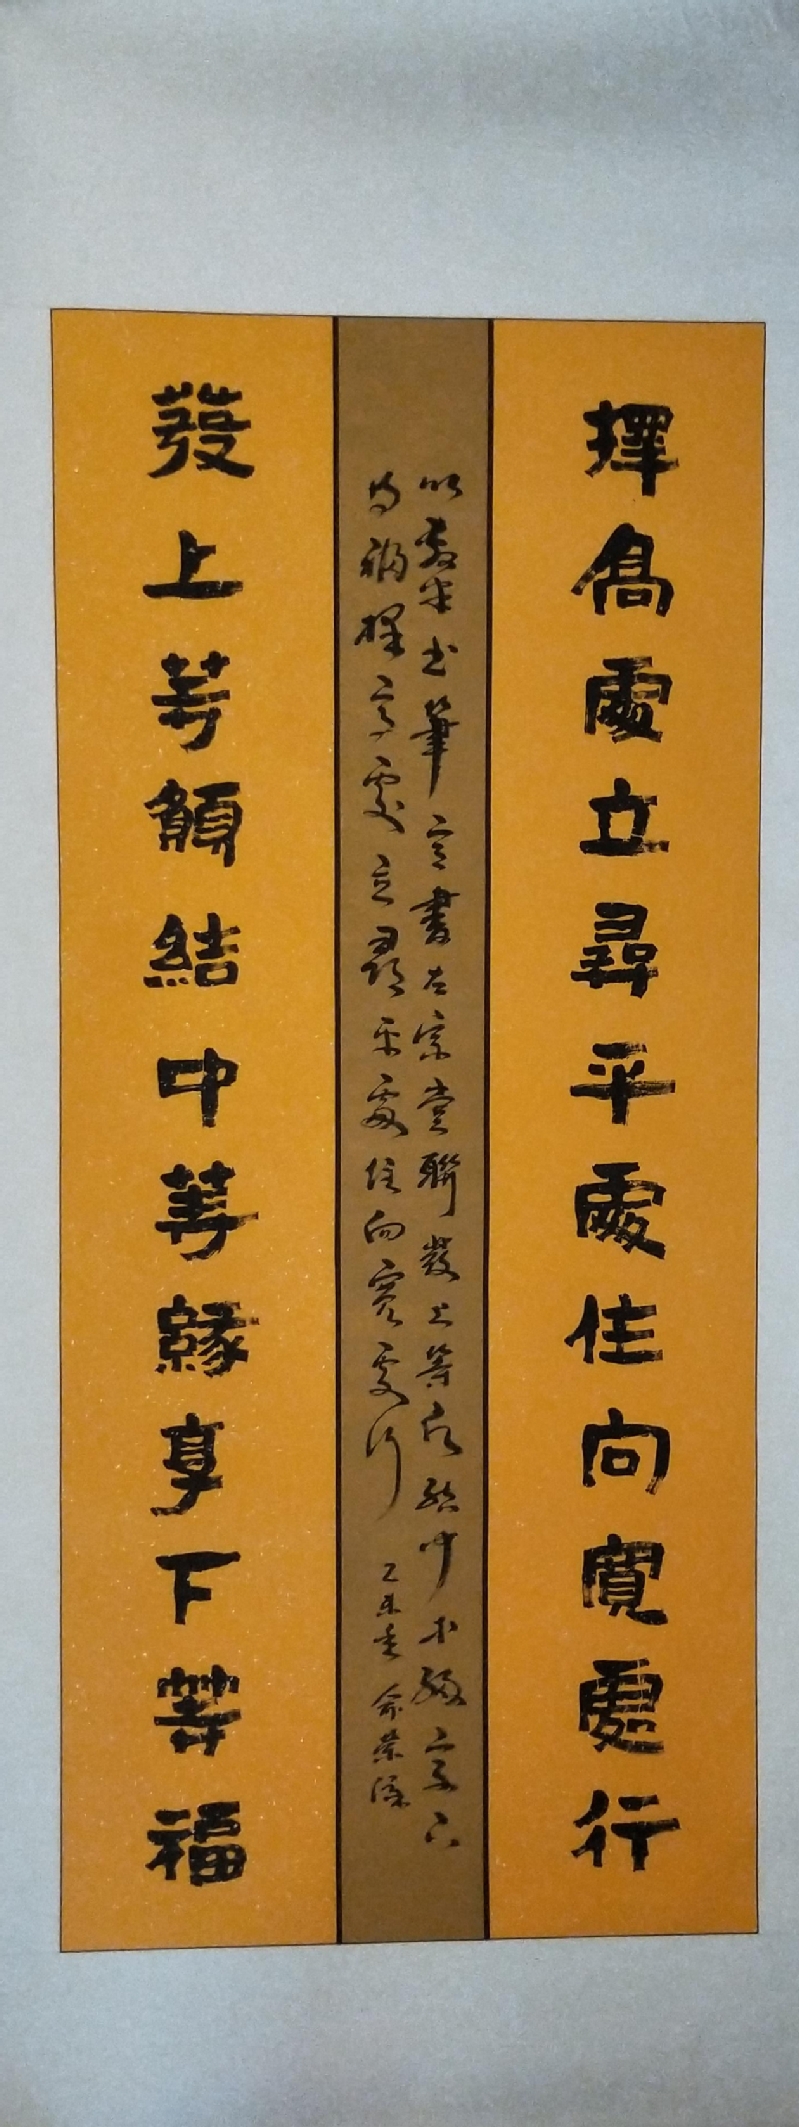 擇高處立尋平處住向寬處行
以發半出筆意書左宗棠聯發上等願結中等緣享下
等福擇高處立尋平處住向寬處行 乙未冬 俞榮
發上等願結中等緣享下等福